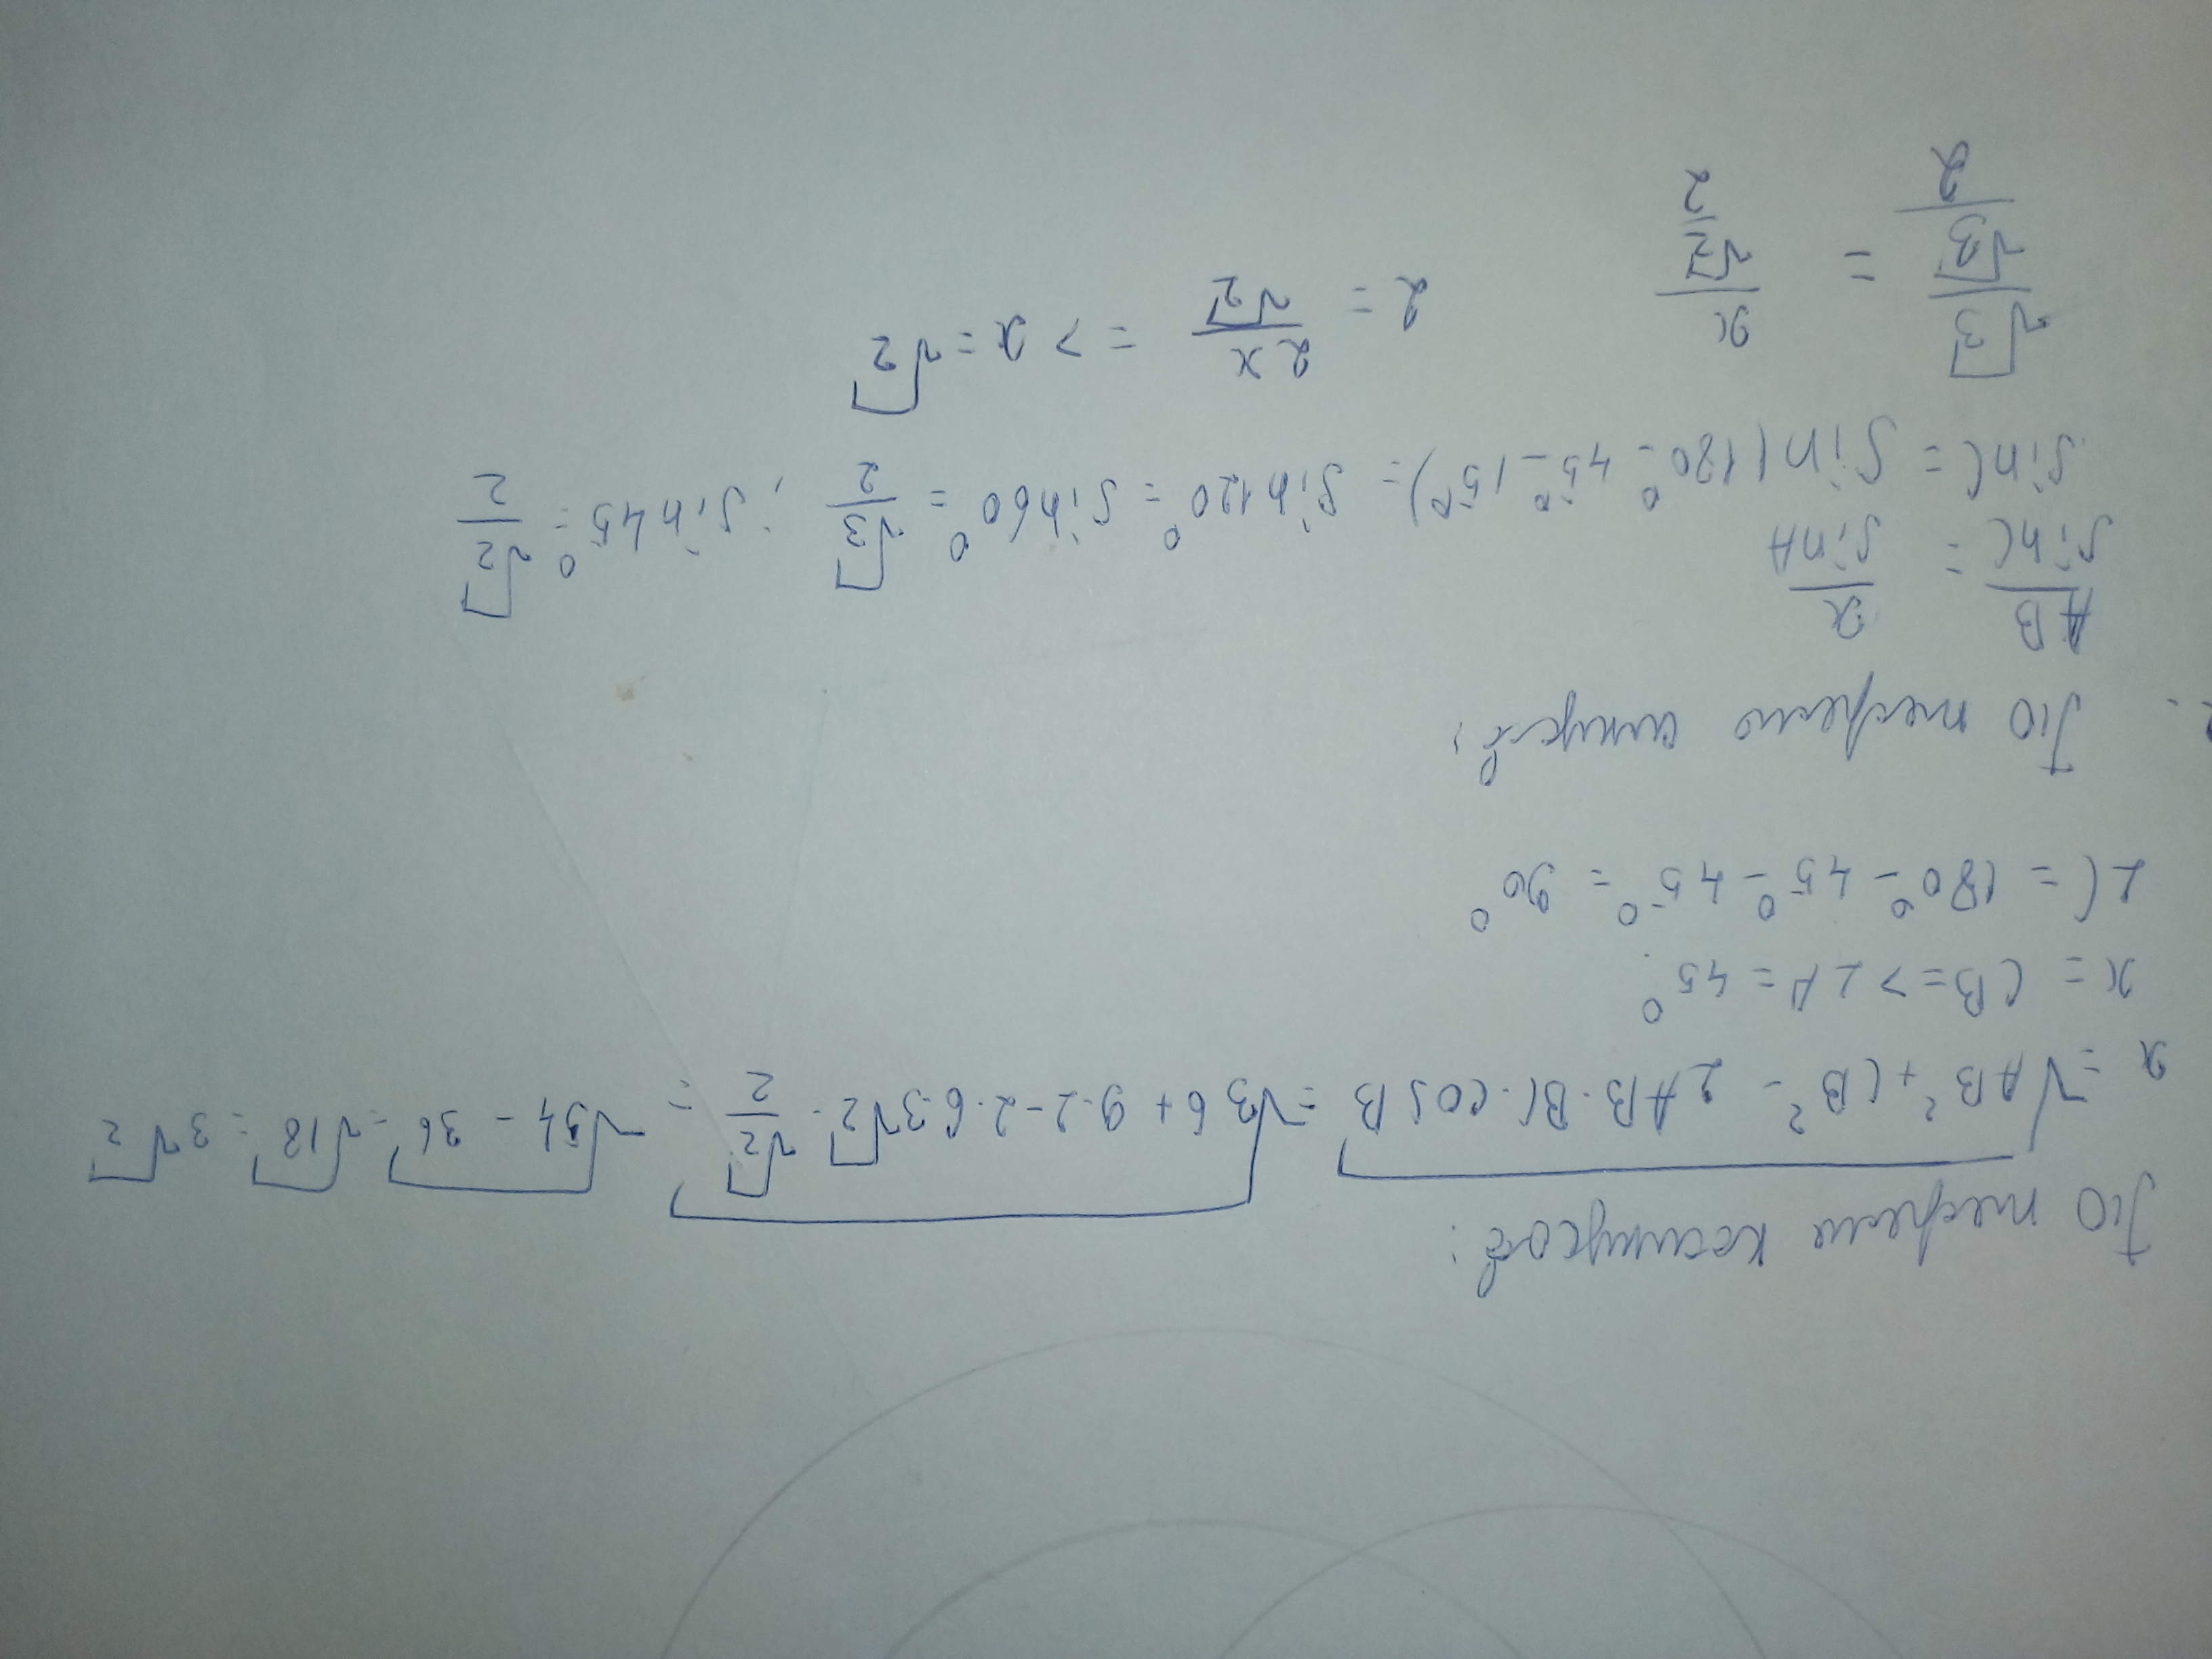 По теореме косинусов:
x = √(AB² + CB² - 2AB·BC·cosB) = √(36 + 9·2 - 2·6·3√2·√2/2) = √(54 - 36) = √18 = 3√2
x = CB => ∠A = 45°
∠C = 180° - 45° - 45° = 90°
По теореме синусов:
AB/sinC = x/sinA
sinC = sin(180° - 45° - 15°) = sin120° = sin60° = √3/2 ; sin45° = √2/2
√3/(√3/2) = x/(√2/2) 2 = 2x/√2 => x = √2